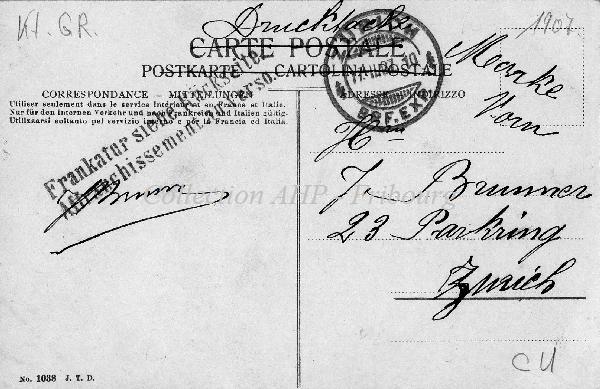 Kt. GR.
Drucksache
1907
CARTE POSTALE
POSTKARTE CARTOLINA POSTALE
CORRESPONDANCE - MITTEILUNGEN
Utiliser seulement dans le service intérieur et en France et Italie.
Nur für den internen Verkehr und nach Frankreich und Italien gültig.
Utilizzarsi soltanto pel servizio interno e per la Francia ed Italia.
ADRESSE INDIRIZZO
ZÜRICH
BRF. EXP.
Frankatur siehe Rückseite.
Affranchissement au verso.
Marke
Vorn
Hrn
J. Brunner
23 Parkring
Zurich
Collection AHP - Fribourg
No. 1038 J. T. D.
CU